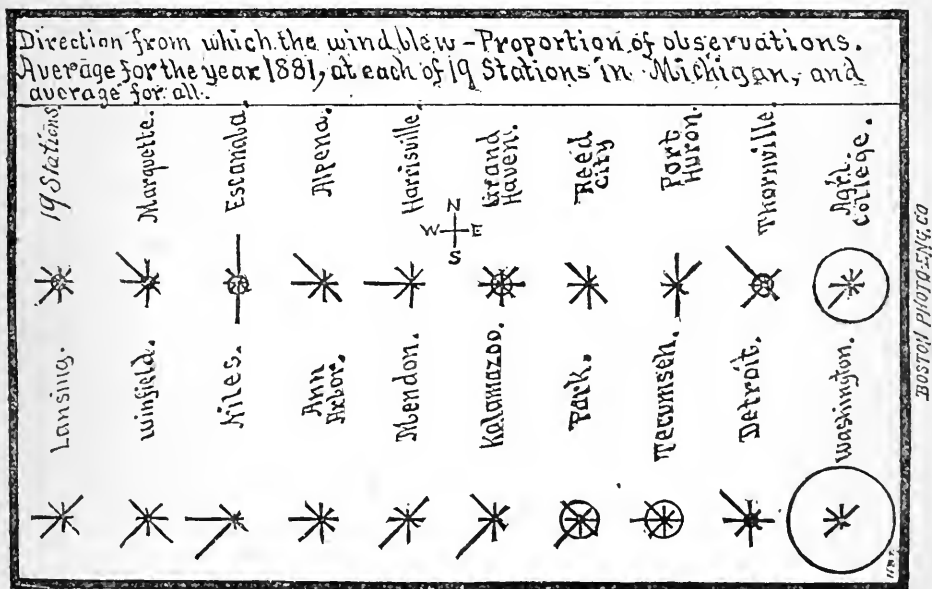 Direction from which the wind blew – Proportion of observations.
Average for the year 1881, at each of 19 Stations in Michigan, and
average for all.
19 Stations.
Marquette.
Escanaba.
Alpena.
Harrisville.
Grand
Haven.
Reed
City
Port
Huron.
Thornville.
Agr'l.
College.
N
W E
S
Lansing.
Winfield.
Niles.
Ann
Arbor.
Mendon.
Kalamazoo.
Park.
Tecumseh.
Detroit.
Washington.
BOSTON PHOTO-ENG. CO